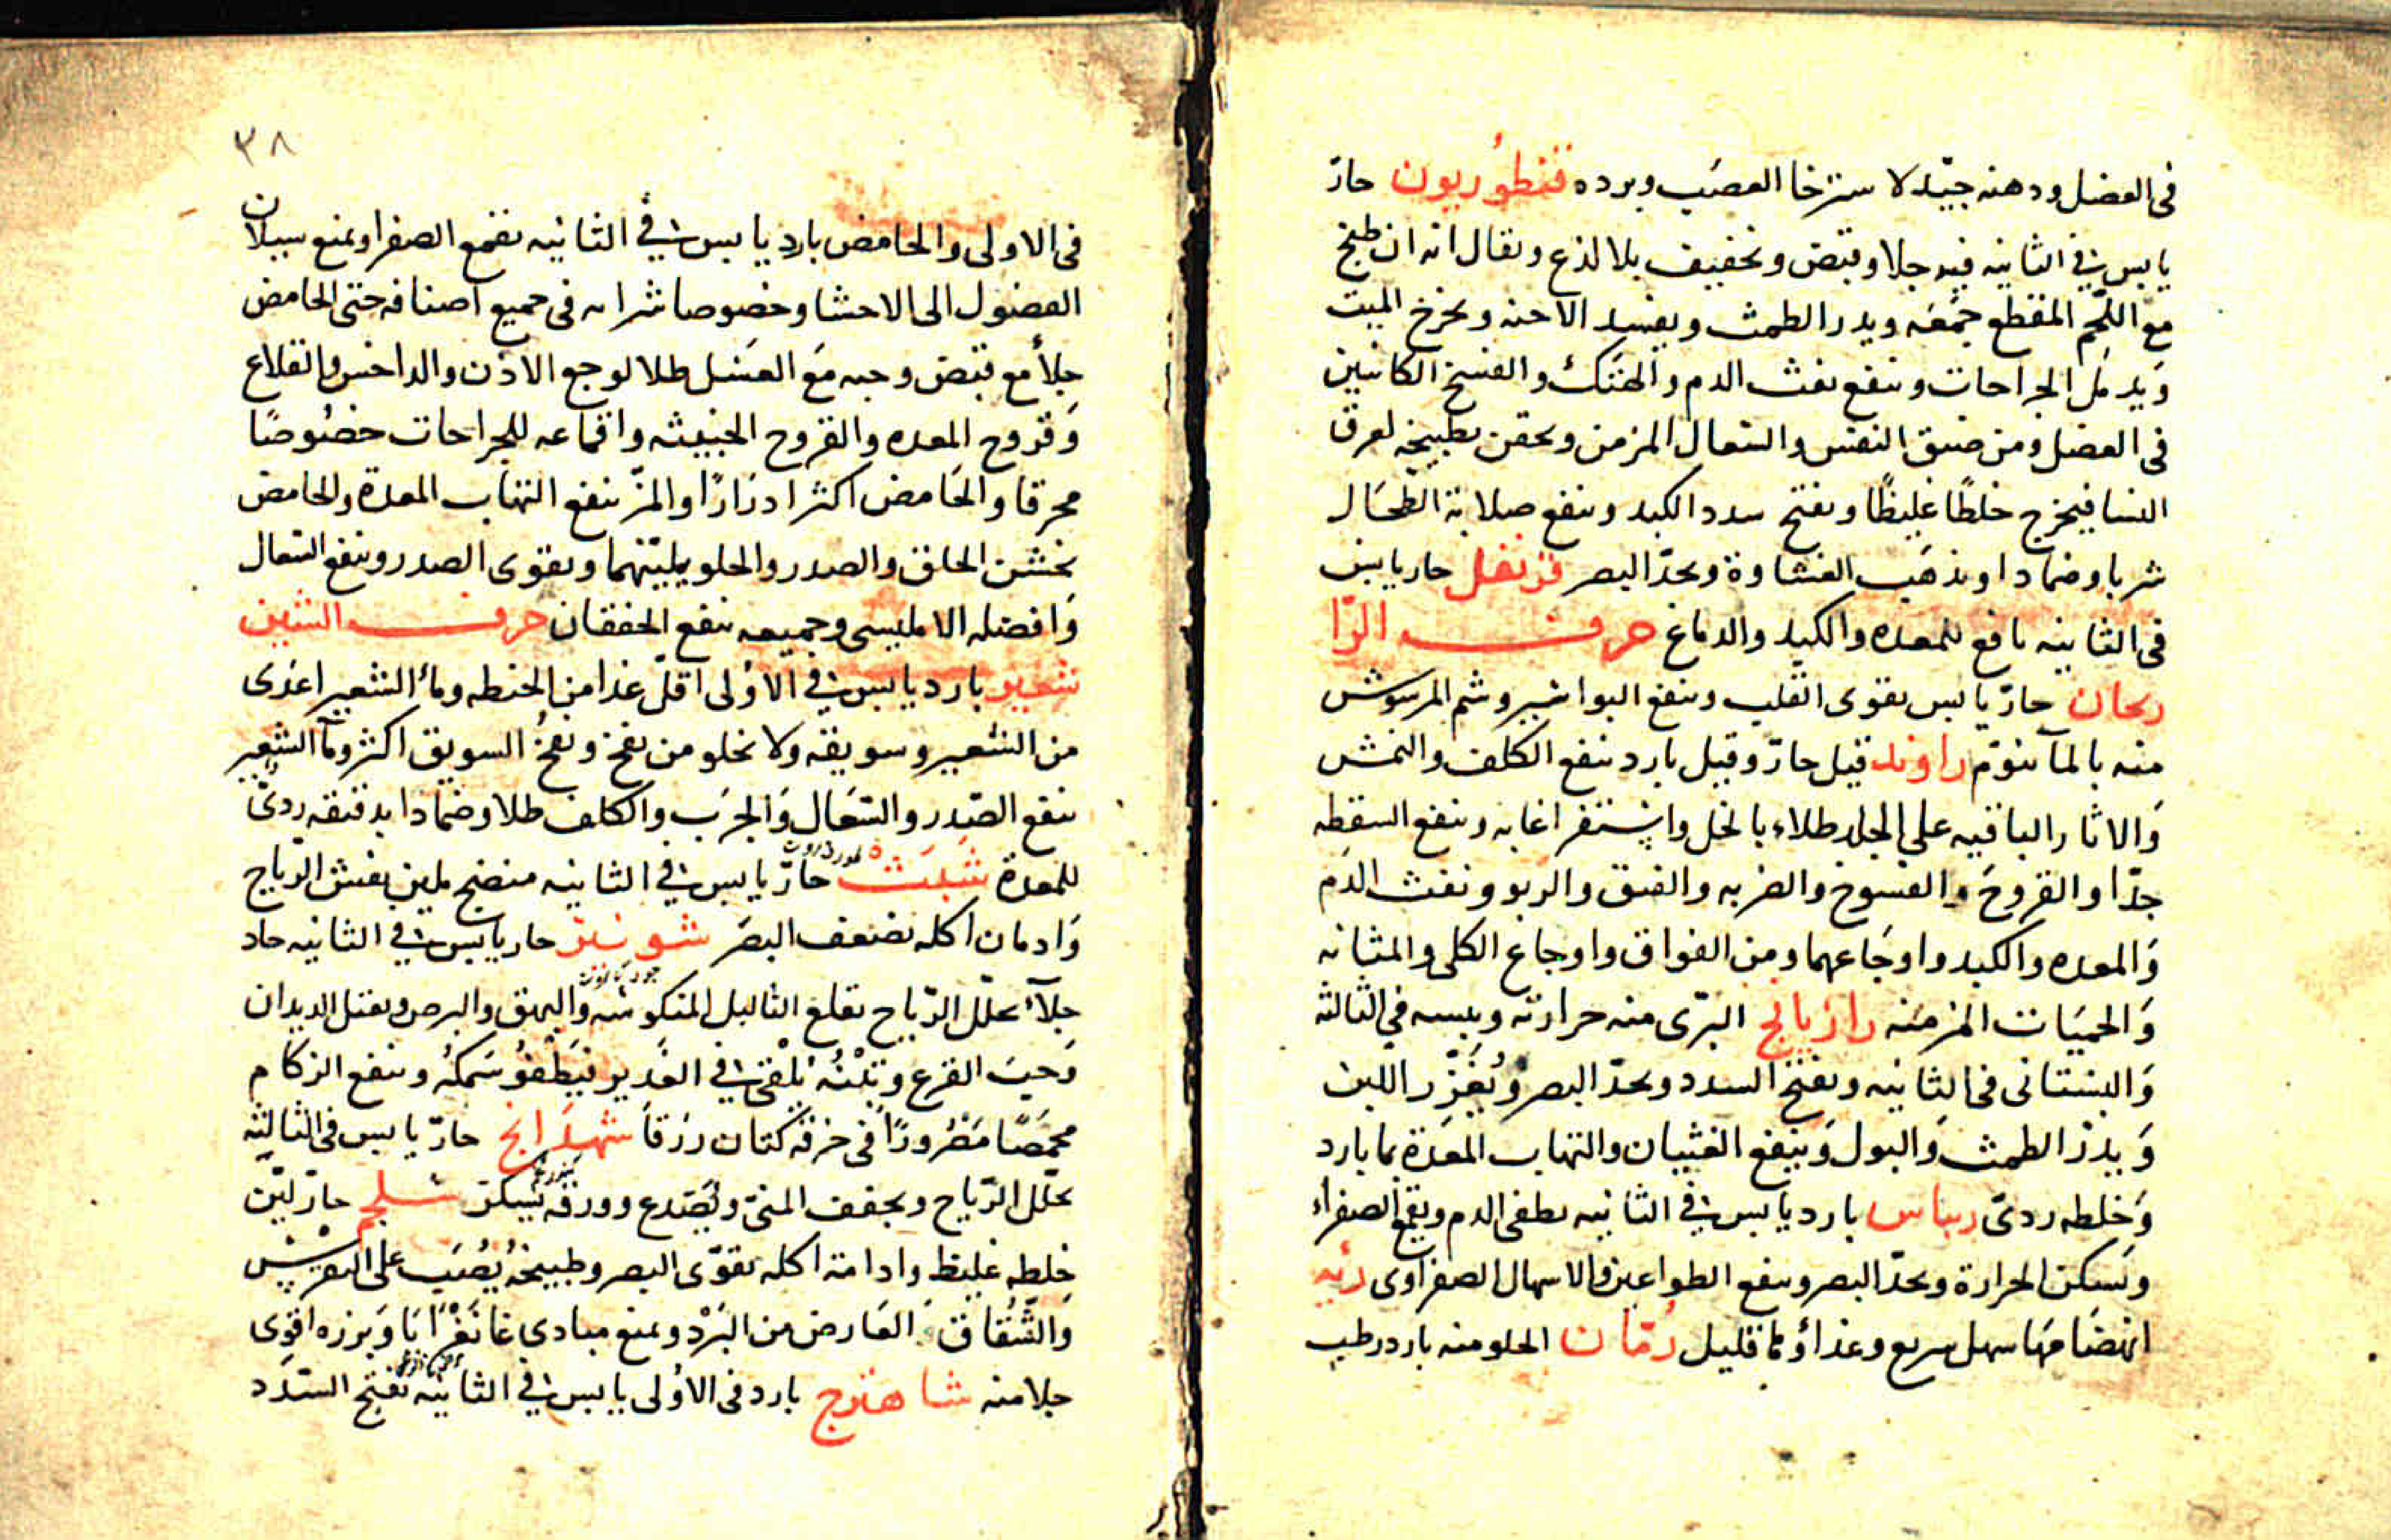 فى العضل ودهنه جيّد لاسترخا العصَب وبرده قنطُوريون حارّ
يابس فى الثانيه فيه جلا وقبض وتجفيف بلا لذع ويقال انه ان طبخ
مع اللحم المقطع جمَعَه ويدر الطمث ويفسد الاجنه ويخرج الميت
وَيدمل الجراحات وينفع نفث الدم والهتك والفسخ الكائنين
فى العضل ومن ضيق النفس والسّعال المزمن ويحقن بطبيخه لعرق
النسا فيخرج خلطًا غليظًا ويفتح سدد الكبد وينفع صلابة الطحَال
شربا وضمادا ويذهَب الغشاوة ويحدّ البصر قرنفل حار يابس
فى الثانيه نافع للمعده والكبد والدماغ حرف الرّا
ريحان حارّ يابس يقوى القلب وينفع البواسير وشم المرشوش
منه بالمآ ينوّم راوند قيل حارّ وقيل بارد ينفع الكلف والنمش
وَالاثار الباقيه على الجلد طلاء بالخل وينفع السقطه
جدّا والقروحَ والفسوخ والضربه والفتق والربو ونفث الدّم
وَالمعده والكبد واوجَاعهما ومن الفواق واوجاع الكلى والمثانه
وَالحميَات المزمنَه رازيانج البرّى منه حرارته ويبسه في الثالثه
وَالبستانى فى الثانيه ويفتح السدد ويحدّ البصر ويُغَزّر اللبن
وَيدرّ الطمث وَالبول وَينفع الغثيان والتهاب المعَدة بما بارد
وَخلطه ردىّ ريباس بارد يابس في الثانيه يطفى الدم ويقمع الصفراء
ويَسكن الحرارة ويحدّ البصر وينفع الطواعين والاسهال الصفراوى رئيه
انهضَامهَا سهل سريع وغذاؤها قليل رُمّان الحلو منه بارد رطب
٣٨
فى الاولى والحامض بارد يابس في الثانيه يقمع الصفرا ويمنع سيلان
الفضول الى الاحشا وخصوصا شرابه فى جميع اصنافه حتى الحامض
جلاً مع قبض وحبه مَع العسَل طلا لوجع الاذن والداحس والقلاع
وَقروح المعده والقروح الخبيثه واقماعه للجراحات خصُوصًا
محرقا والحَامض اكثر ادرَارًا والمزّ ينفع التهاب المعدة والحامض
يخشن الحلق والصدر والحلو يليّنهما ويقوى الصدر وينفع السّعال
وَافضله الامليسى وجميعه ينفع الخفقان حرف الشين
شعير بارد يابس في الاوُلى اقلّ غذا من الحنطه ومأ الشعير اغذى
من الشعير وسويقه ولا يخلو من نفخ ونفخُ السويق اكثر ومآ الشعير
ينفع الصّدر والسّعَال وَالجرَب والكلف طلا وضمادا بدقيقه ردىّ
للمعدة شبَث حارّ يابس في الثانيه منضج ملين يفش الرّياح
وَادمان اكله يضعف البصَر شونيز حار يابس في الثانيه حاد
جلآء يحلّل الرّياح يقلع الثاليل المنكوسَه والبهق والبرص ويقتل الديدان
وَحبَ القرع وَتِبْنُه يُلقى في الغَدير فيَطفوُ سَمكهُ وينفع الزكام
محمصًا مَصْرورًا فى خرقه كتان زرقاَ شهدَانج حارّ يابس فى الثالثه
يحلّل الرّياح ويجفف المنىّ ويُصَدع وورقه يُسكر شلجم حارّ ليّن
خلطه غليظ وادامة اكله يقوّى البصر وطبيخُهُ يُصَب على النقرس
وَالشُقاق العَارض من البَرْد ويمنع مبادى غانغْرَايَا وَبزره اقوَى
جلا منه شاهترج بارد فى الاوُلى يابس في الثانيه يفتح السّدَد